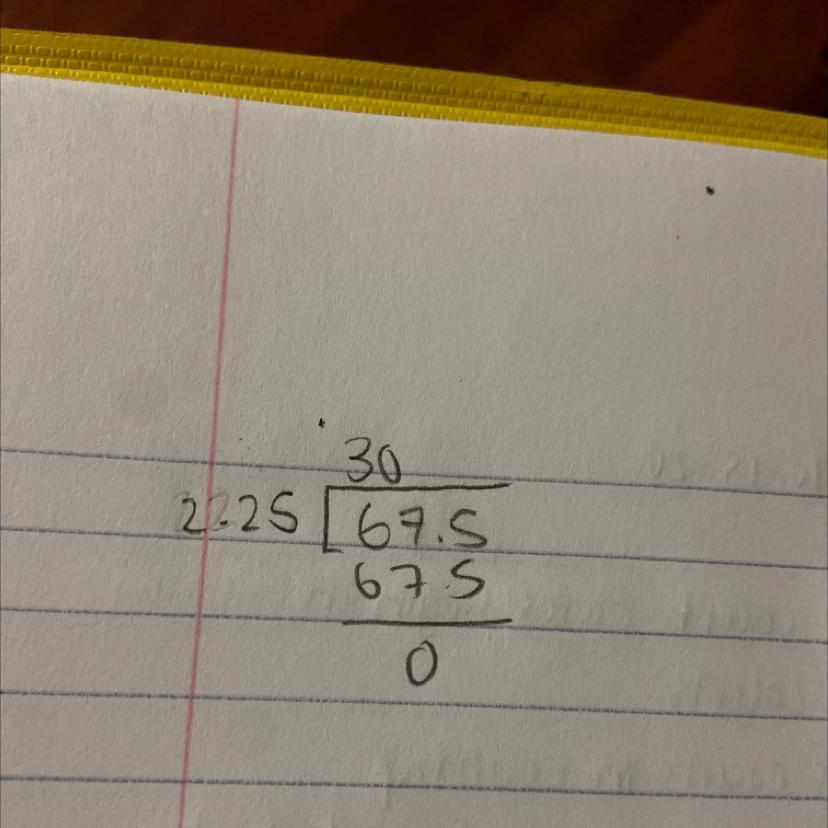 30
2.25 67.5
67.5
0